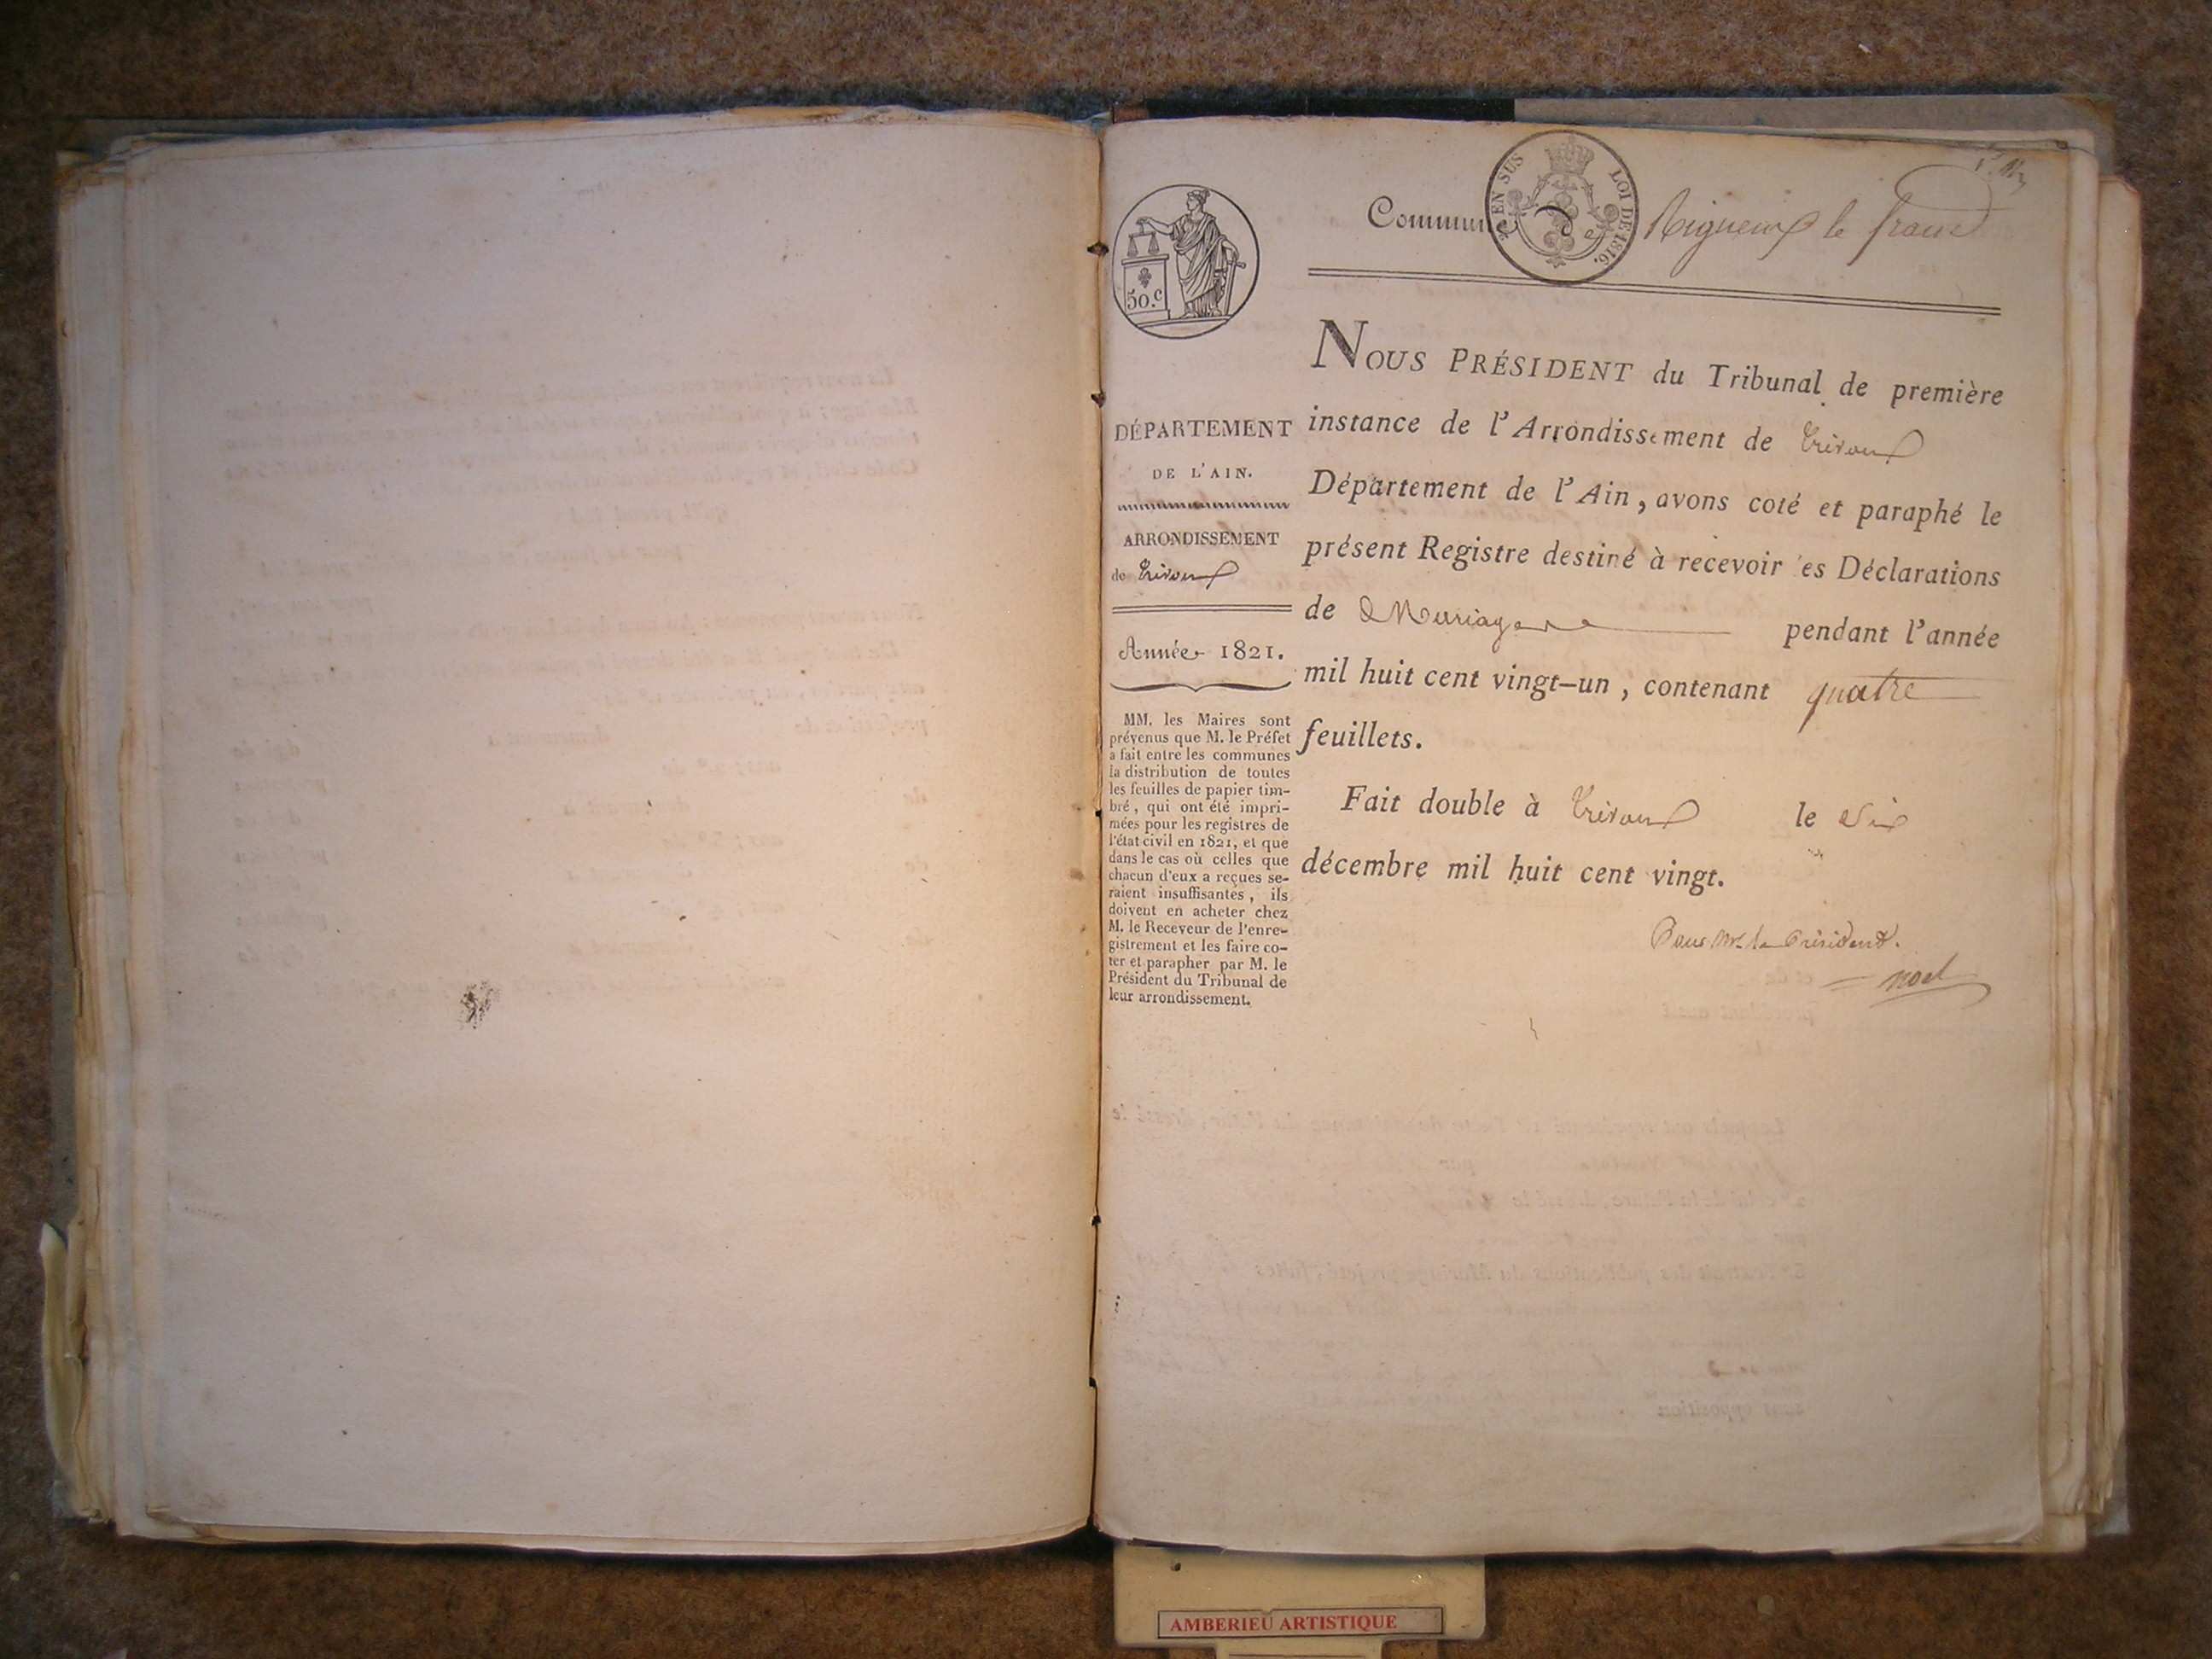 Commune de Rigneux le franc
EN SUS LOI DE 1816.
50.c
NOUS PRÉSIDENT du Tribunal de première
instance de l'Arrondissement de Trévoux
Département de l'Ain, avons coté et paraphé le
présent Registre destiné à recevoir les Déclarations
de Mariage pendant l'année
mil huit cent vingt-un, contenant quatre
feuillets.
Fait double à Trévoux le six
décembre mil huit cent vingt.
Pour Mr. le Président.
noel
DÉPARTEMENT
DE L'AIN.
ARRONDISSEMENT
de Trévoux
Année 1821.
MM. les Maires sont
prévenus que M. le Préfet
a fait entre les communes
la distribution de toutes
les feuilles de papier tim-
bré, qui ont été impri-
mées pour les registres de
l'état civil en 1821, et que
dans le cas où celles que
chacun d'eux a reçues se-
raient insuffisantes, ils
doivent en acheter chez
M. le Receveur de l'enre-
gistrement et les faire co-
ter et parapher par M. le
Président du Tribunal de
leur arrondissement.
AMBERIEU ARTISTIQUE